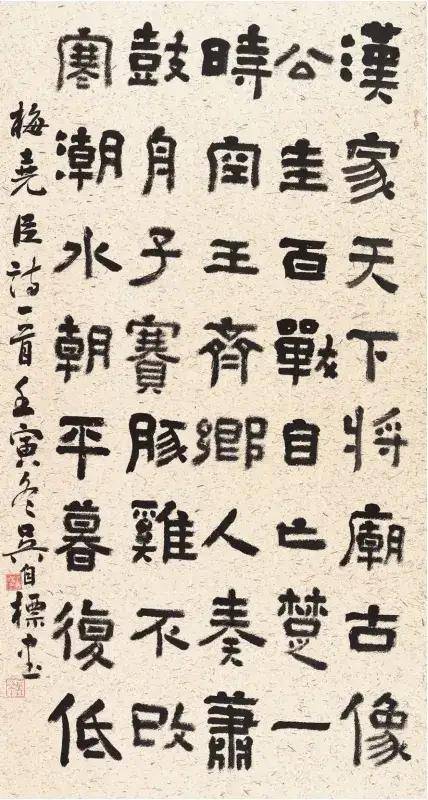 漢家天下將廟古像
公圭百戰自亡楚一
時空王齊鄉人奏蕭
鼓舟子賽豚雞不改
寒潮水朝平暮復低
梅堯臣詩一首壬寅冬吳自標書